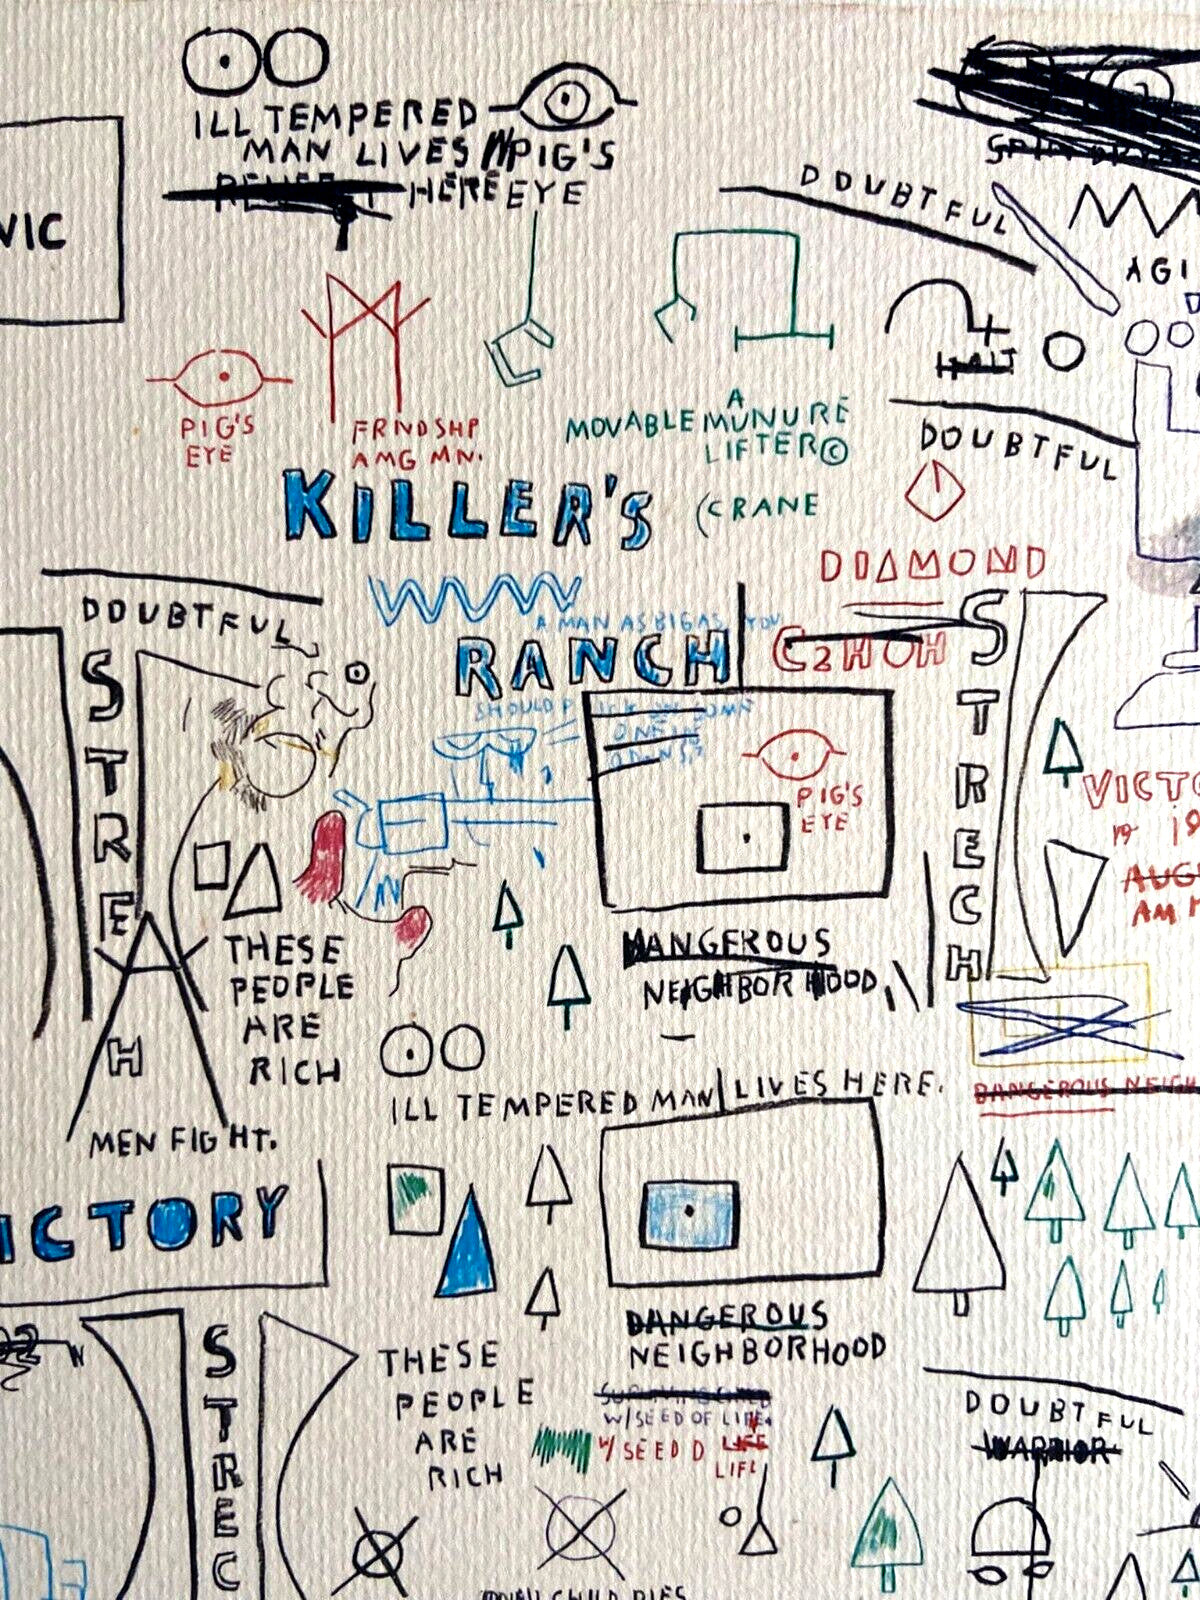 ILL TEMPERED
MAN LIVES
HERE
PIG'S
EYE
VIC
DOUBTFUL
AGI
HALT
PIG'S
EYE
FRNDSHP
AMG MN.
A
MOVABLE MUNURE
LIFTER©
(CRANE
DOUBTFUL
KILLER'S
DIAMOND
DOUBTFUL
A MAN AS BIG AS YOU
RANCH
C2HOH
SHOULD PICK ON SOME
ONE
STRE
H
STRECH
PIG'S
EYE
VICTO
19 19
AUGU
AM
THESE
PEOPLE
ARE
RICH
DANGEROUS
NEIGHBORHOOD
ILL TEMPERED MAN LIVES HERE.
DANGEROUS NEIGH
MEN FIGHT.
ICTORY
DANGEROUS
NEIGHBORHOOD
STREC
THESE
PEOPLE
ARE
RICH
W/SEED OF LIFE.
W/ SEED D LIFE
LIFE
DOUBTFUL
WARRIOR
CHILD DIES